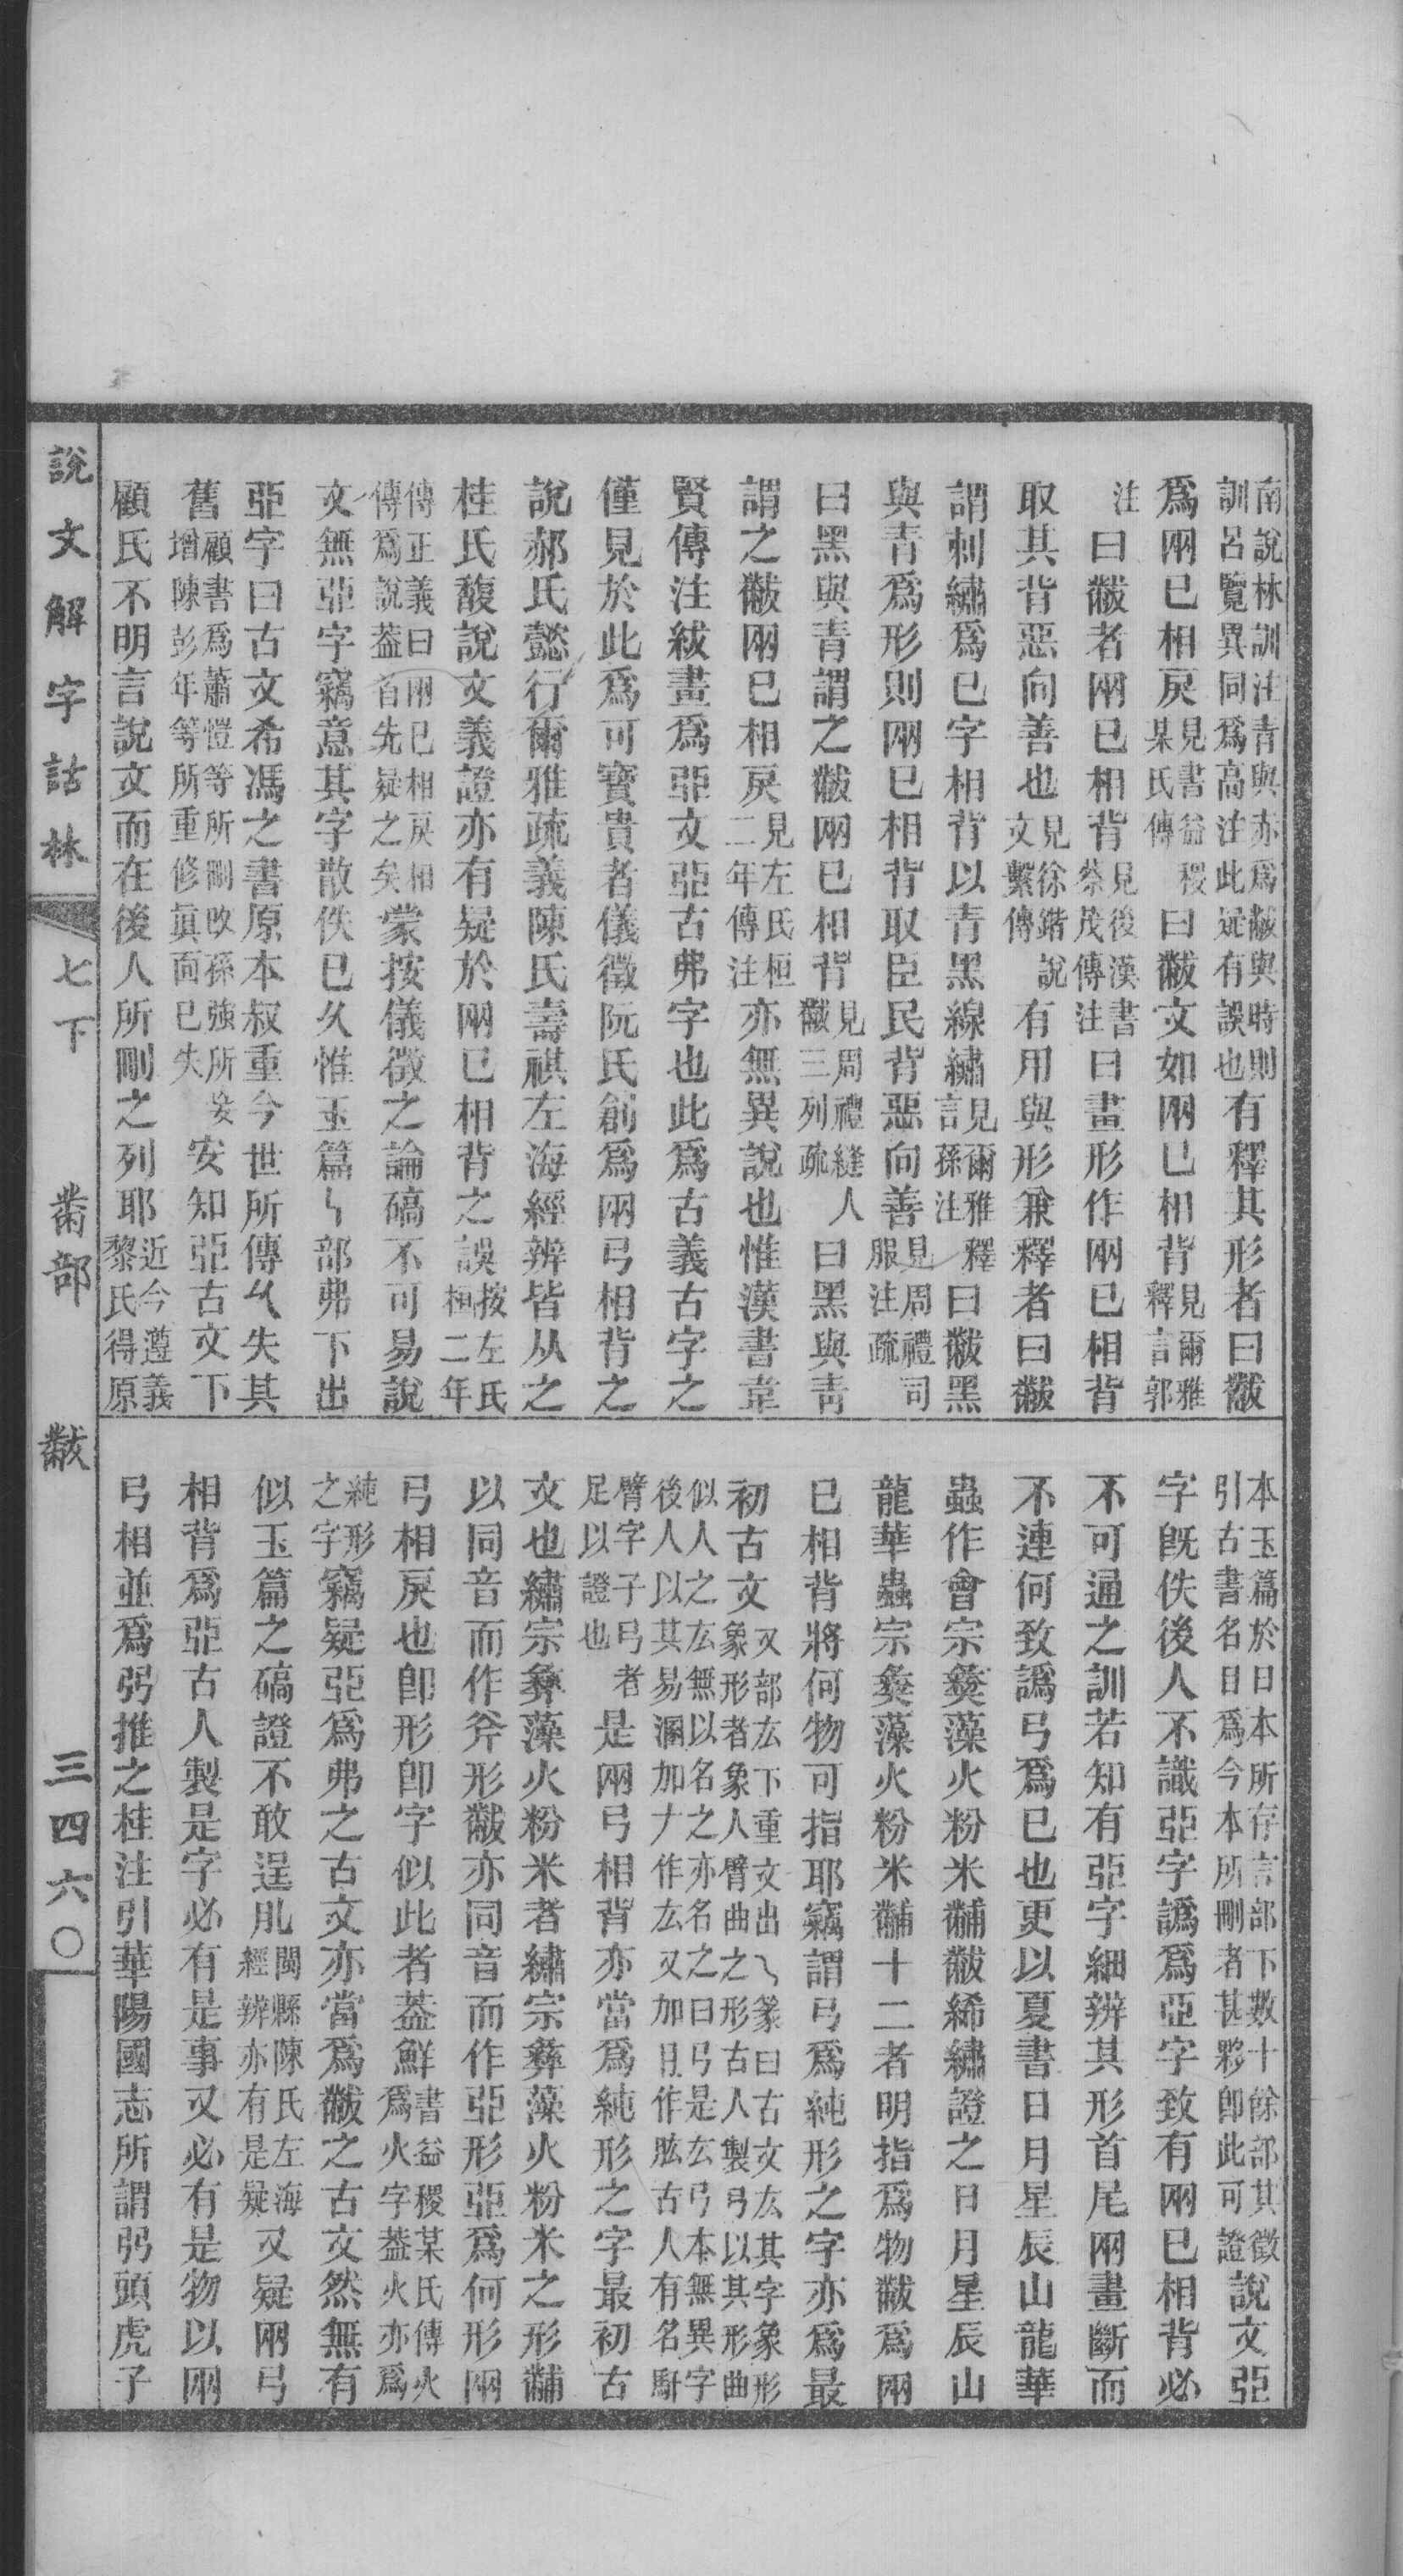 南說林訓注青與赤爲黻與時則
訓呂覽異同爲高注此疑有誤也有釋其形者曰黻
爲兩已相戾見書益稷某氏傳曰黻文如兩已相背見爾雅釋言郭
注曰黻者兩已相背見後漢書蔡茂傳注曰畫形作兩已相背
取其背惡向善也見徐鍇說文繫傳有用與形兼釋者曰黻
謂刺繡爲已字相背以青黑線繡見爾雅釋言孫注曰黻黑
與青爲形則兩已相背取臣民背惡向善見周禮司服注疏
曰黑與青謂之黻兩已相背見周禮縫人黻三列疏曰黑與青
謂之黻兩已相戾見左氏桓二年傳注亦無異說也惟漢書韋
賢傳注紱畫爲亞文亞古弗字也此爲古義古字之
僅見於此爲可寶貴者儀徵阮氏創爲兩弓相背之
說郝氏懿行爾雅疏義陳氏壽祺左海經辨皆从之
桂氏馥說文義證亦有疑於兩已相背之誤按左氏桓二年
傳正義曰兩已相戾相傳爲說葢首先疑之矣蒙按儀徵之論碻不可易說
文無亞字竊意其字散佚已久惟玉篇部弗下出
亞字曰古文希馮之書原本叔重今世所傳久失其
舊顧書爲蕭愷等所刪改孫強所增陳彭年等所重修眞面已失妄安知亞古文下
顧氏不明言說文而在後人所刪之列耶近今遵義黎氏得原
本玉篇於日本所存言部下數十餘部其徵引古書名目爲今本所刪者甚夥卽此可證說文亞
字旣佚後人不識亞字譌爲亞字致有兩已相背必
不可通之訓若知有亞字細辨其形首尾兩畫斷而
不連何致譌弓爲已也更以夏書日月星辰山龍華
蟲作會宗彝藻火粉米黼黻絺繡證之日月星辰山
龍華蟲宗彝藻火粉米黼十二者明指爲物黻爲兩
已相背將何物可指耶竊謂弓爲純形之字亦爲最
初古文又部厷下重文出篆曰古文厷其字象形象形者象人臂曲之形古人製弓以其形曲
似人之厷無以名之亦名之曰弓是厷弓本無異字後人以其易溷加ナ作厷又加月作肱古人有名馯
臂字子弓者足以證也是兩弓相背亦當爲純形之字最初古
文也繡宗彝藻火粉米者繡宗彝藻火粉米之形黼
以同音而作斧形黻亦同音而作亞形亞爲何形兩
弓相戾也卽形卽字似此者葢鮮書益稷某氏傳火爲火字葢火亦爲
純形之字竊疑亞爲弗之古文亦當爲黻之古文然無有
似玉篇之碻證不敢逞肊閩縣陳氏左海經辨亦有是疑又疑兩弓
相背爲亞古人製是字必有是事又必有是物以兩
弓相並爲弜推之桂注引華陽國志所謂弜頭虎子
說文解字詁林
七下
黹部
黻
三四六〇